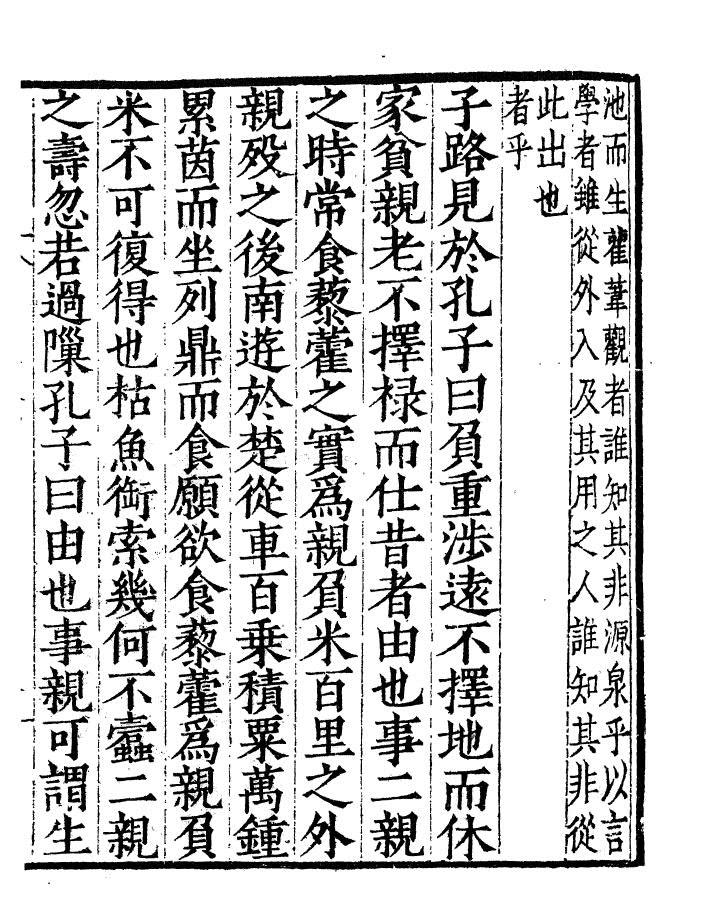 池而生雚葦觀者誰知其非源泉乎以言
學者雖從外入及其用之人誰知其非從
此出也
者乎
子路見於孔子曰負重涉遠不擇地而休
家貧親老不擇祿而仕昔者由也事二親
之時常食藜藿之實爲親負米百里之外
親歿之後南遊於楚從車百乘積粟萬鍾
累茵而坐列鼎而食願欲食藜藿爲親負
米不可復得也枯魚銜索幾何不蠹二親
之壽忽若過隟孔子曰由也事親可謂生